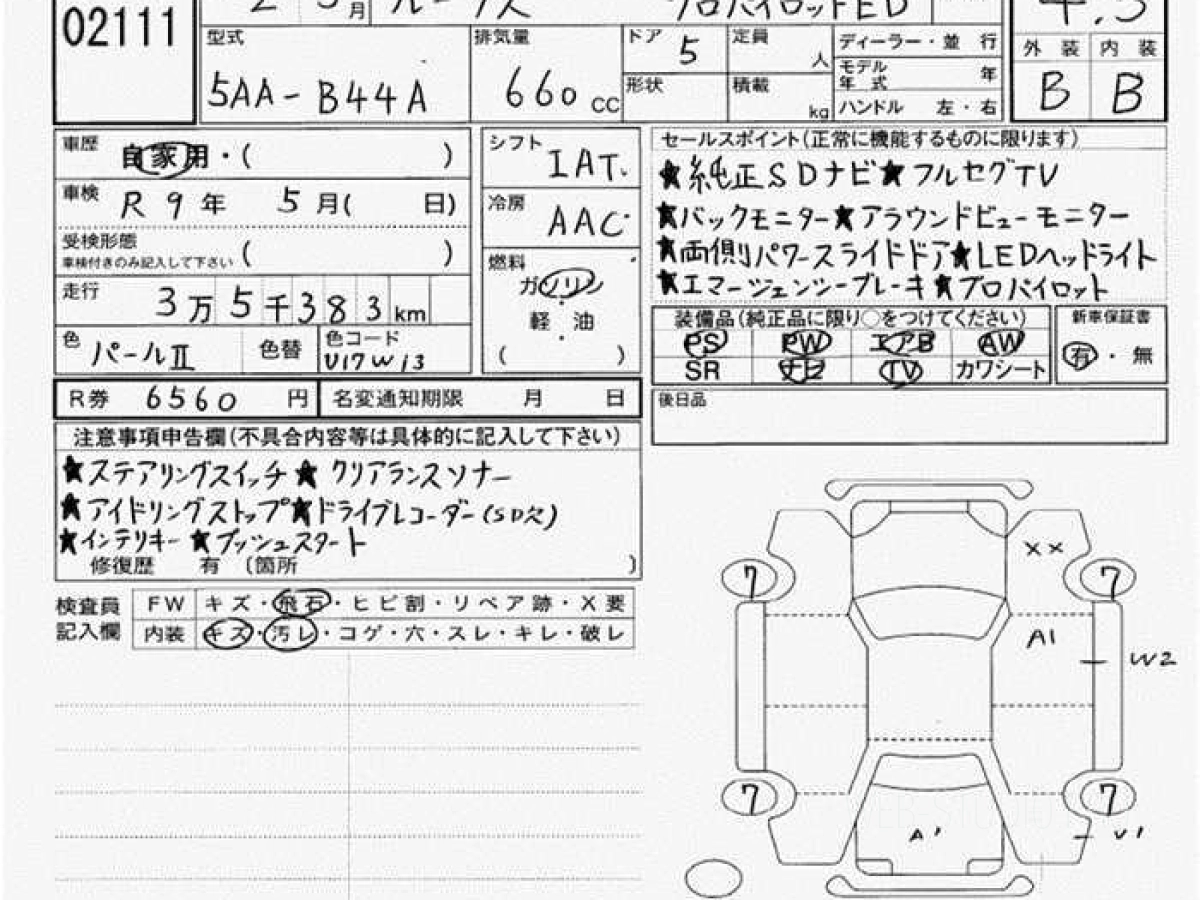 02111
月 ルークス プロパイロットED
型式 5AA-B44A
排気量 660 CC
ドア 5
定員 人
形状
積載 kg
ディーラー・並行
モデル年式 年
ハンドル 左・右
4.5
外装 内装
B B
車歴 自家用・( )
車検 R 9年 5月( 日)
受検形態 ( )
車検付きのみ記入して下さい
走行 3万5千383km
色 パールⅡ 色替 色コード
シフト IAT.
冷房 AAC
燃料 ガソリン
軽油
( )
セールスポイント(正常に機能するものに限ります)
★純正SDナビ★フルセグTV
★バックモニター★アラウンドビューモニター
★両側パワースライドドア★LEDヘッドライト
★エマージェンシーブレーキ★プロパイロット
装備品(純正品に限り○をつけてください)
PS PW エアB AW
SR ナビ TV カワシート
新車保証書
有・無
R券 6560 円 名変通知期限 月 日
後日品
注意事項申告欄(不具合内容等は具体的に記入して下さい)
★ステアリングスイッチ★クリアランスソナー
★アイドリングストップ★ドライブレコーダー(SD欠)
★インテリキー★プッシュスタート
修復歴 有 〔箇所 〕
検査員記入欄
FW キズ・飛石・ヒビ割・リペア跡・X要
内装 キズ・汚レ・コゲ・穴・スレ・キレ・破レ
XX
7 7
A1
W2
7 7
A1
U1